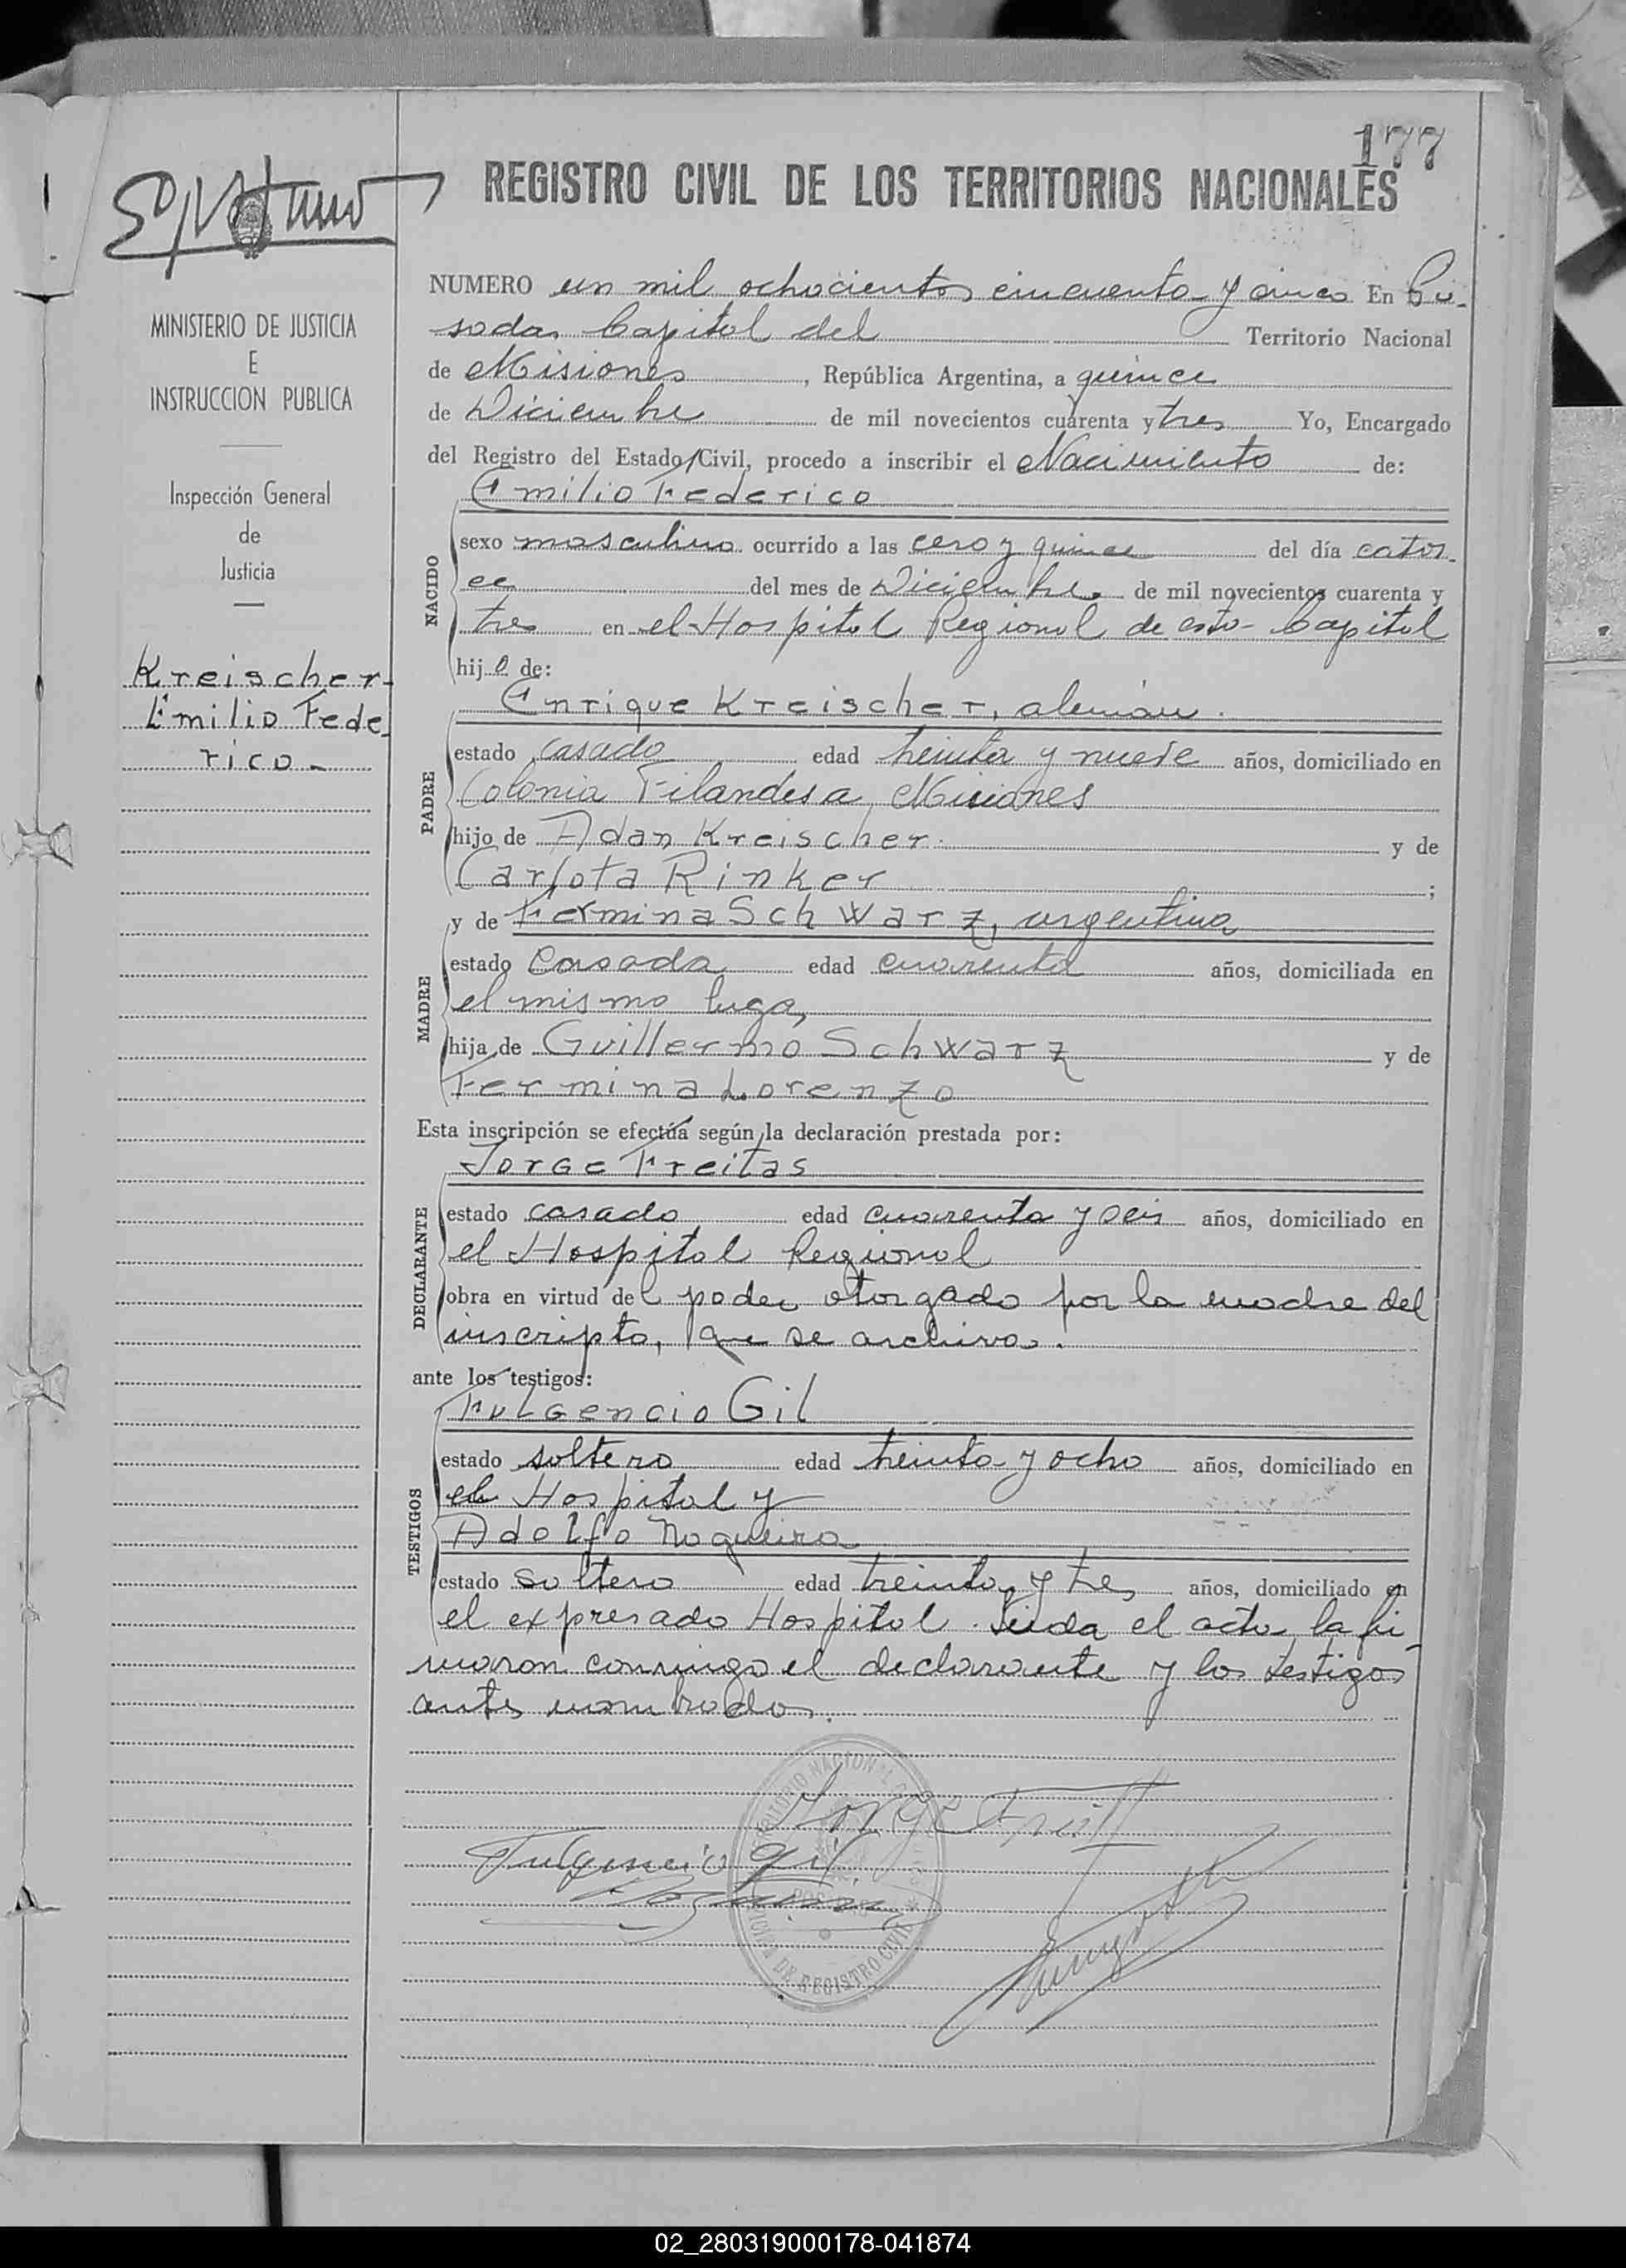 177
REGISTRO CIVIL DE LOS TERRITORIOS NACIONALES
MINISTERIO DE JUSTICIA
E
INSTRUCCION PUBLICA
Inspección General
de
Justicia
Kreischer-
Emilio Fede
rico-
NUMERO un mil ochocientos cincuenta y cinco En Po-
sadas Capital del Territorio Nacional
de Misiones, República Argentina, a quince
de Diciembre de mil novecientos cuarenta y tres Yo, Encargado
del Registro del Estado Civil, procedo a inscribir el Nacimiento de:
Emilio Federico
NACIDO
sexo masculino ocurrido a las cero y quince del día cator-
ce del mes de Diciembre de mil novecientos cuarenta y
tres en el Hospital Regional de esta Capital
hijo de:
PADRE
Enrique Kreischer, alemán.
estado casado edad treinta y nueve años, domiciliado en
Colonia Filandesa, Misiones
hijo de Adan Kreischer. y de
Carlota Rinker;
MADRE
y de Fermina Schwarz, argentina
estado casada edad cuarenta años, domiciliada en
el mismo lugar,
hija de Guillermo Schwarz y de
Fermina Lorenzo
Esta inscripción se efectúa según la declaración prestada por:
DECLARANTE
Jorge Freitas
estado casado edad cuarenta y seis años, domiciliado en
el Hospital Regional
obra en virtud del poder otorgado por la madre del
inscripto, que se archiva.
ante los testigos:
TESTIGOS
Fulgencio Gil
estado soltero edad treinta y ocho años, domiciliado en
el Hospital y
Adolfo Nogueira
estado soltero edad treinta y tres años, domiciliado en
el expresado Hospital. Leida el acta, la fir-
maron conmigo el declarante y los testigos
antes nombrados.
Jorge Freitas
Fulgencio Gil
REGISTRO CIVIL
02_280319000178-041874